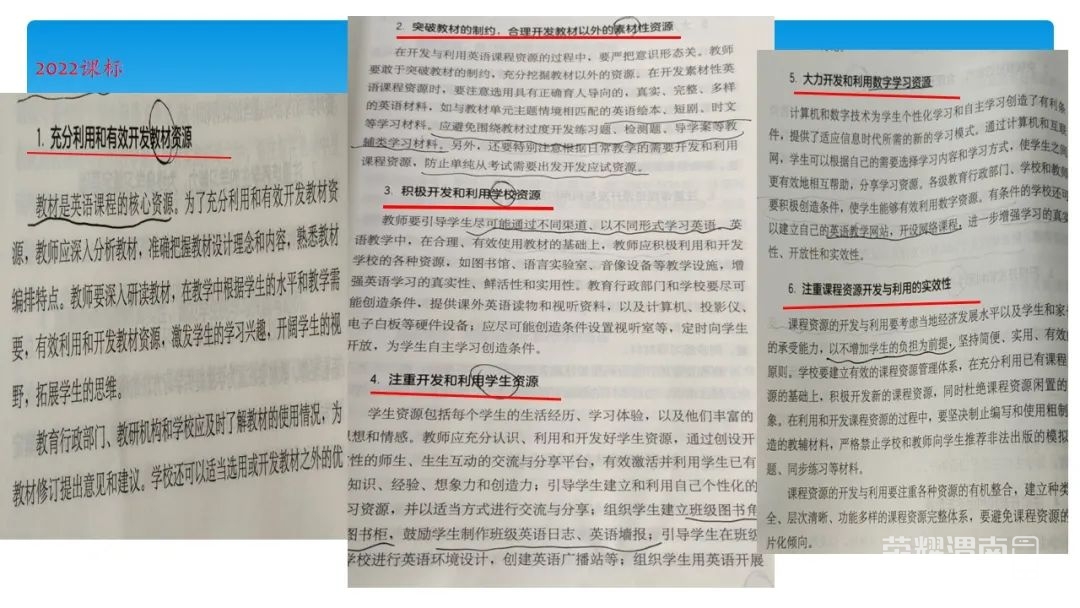 2022课标
1. 充分利用和有效开发教材资源
教材是英语课程的核心资源。为了充分利用和有效开发教材资
源，教师应深入分析教材，准确把握教材设计理念和内容，熟悉教材
编排特点。教师要深入研读教材，在教学中根据学生的水平和教学需
要，有效利用和开发教材资源，激发学生的学习兴趣，开阔学生的视
野，拓展学生的思维。
教育行政部门、教研机构和学校应及时了解教材的使用情况，为
教材修订提出意见和建议。学校还可以适当选用或开发教材之外的优
2. 突破教材的制约，合理开发教材以外的素材性资源
在开发与利用英语课程资源的过程中，要严把意识形态关。教师
要敢于突破教材的制约，充分挖掘教材以外的资源。在开发素材性英
语课程资源时，要注意选用具有正确育人导向的，真实、完整、多样
的英语材料，如与教材单元主题情境相匹配的英语绘本、短剧、时文
等学习材料。应避免围绕教材过度开发练习题、检测题、导学案等教
辅类学习材料。另外，还要特别注意根据日常教学的需要开发和利用
课程资源，防止单纯从考试需要出发开发应试资源。
3. 积极开发和利用学校资源
教师要引导学生尽可能通过不同渠道、以不同形式学习英语。英
语教学中，在合理、有效使用教材的基础上，教师应积极利用和开发
学校的各种资源，如图书馆、语言实验室、音像设备等教学设施，增
强英语学习的真实性、鲜活性和实用性。教育行政部门和学校要尽可
能创造条件，提供课外英语读物和视听资料，以及计算机、投影仪、
电子白板等硬件设备；应尽可能创造条件设置视听室等，定时向学生
开放，为学生自主学习创造条件。
4. 注重开发和利用学生资源
学生资源包括每个学生的生活经历、学习体验，以及他们丰富的
思想和情感。教师应充分认识、利用和开发好学生资源，通过创设开
性的师生、生生互动的交流与分享平台，有效激活并利用学生已有
知识、经验、想象力和创造力；引导学生建立和利用自己个性化的
习资源，并以适当方式进行交流与分享；组织学生建立班级图书角
图书柜，鼓励学生制作班级英语日志、英语墙报；引导学生在班级
学校进行英语环境设计，创建英语广播站等；组织学生用英语开展
5. 大力开发和利用数字学习资源
计算机和数字技术为学生个性化学习和自主学习创造了有利条
件，提供了适应信息时代所需的新的学习模式。通过计算机和互联
网，学生可以根据自己的需要选择学习内容和学习方式，使学生之间
更有效地相互帮助，分享学习资源。各级教育行政部门、学校和教师
要积极创造条件，使学生能够有效利用数字资源。有条件的学校还可
以建立自己的英语教学网站，开设网络课程，进一步增强学习的真实
性、开放性和实效性。
6. 注重课程资源开发与利用的实效性
课程资源的开发与利用要考虑当地经济发展水平以及学生和家长
的承受能力，以不增加学生的负担为前提，坚持简便、实用、有效的
原则。学校要建立有效的课程资源管理体系，在充分利用已有课程
源的基础上，积极开发新的课程资源，同时杜绝课程资源闲置的
象。在利用和开发课程资源的过程中，要坚决制止编写和使用粗制
造的教辅材料，严格禁止学校和教师向学生推荐非法出版的模拟
题、同步练习等材料。
课程资源的开发与利用要注重各种资源的有机整合，建立种类
全、层次清晰、功能多样的课程资源完整体系，要避免课程资源的
片化倾向。
荣耀渭南